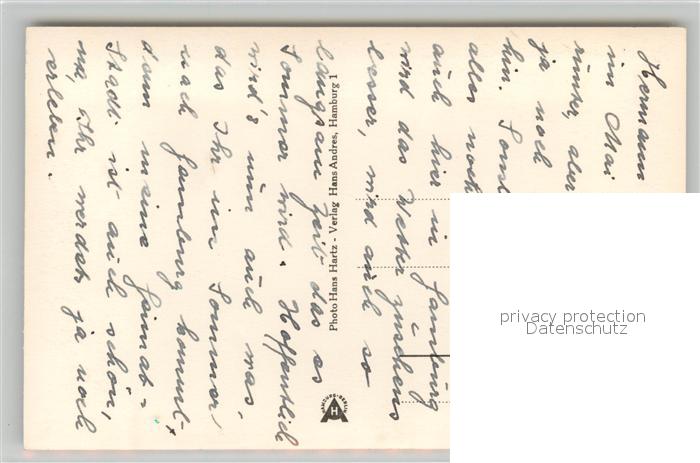 Hermann
im Mai
runter, aber
ja noch
hin. Sonst
alles noch
auch hier in Hamburg
wird das Wetter zusehens
besser, wird auch so
langsam Zeit das es
Sommer wird. Hoffentlich
wird's nun auch was,
das Ihr im Sommer
nach Hamburg kommt.
denn meine Heimat-
Stadt ist auch schön,
na, Ihr werdet ja noch
erleben.
Photo Hans Hartz - Verlag Hans Andres, Hamburg 1
HAMBURG-BERLIN
privacy protection
Datenschutz